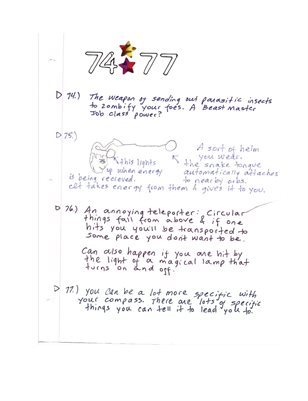 74 77
74.) The weapon of sending out parasitic insects
to zombify your foes. A Beast Master
Job class power?
75.)
this lights
up when energy
is being recieved.
A sort of helm
you wear.
the snake tongue
automatically attaches
to nearby orbs.
It takes energy from them & gives it to you.
76.) An annoying teleporter: Circular
things fall from above & if one
hits you you'll be transported to
some place you dont want to be.
Can also happen if you are hit by
the light of a magical lamp that
turns on and off.
77.) you can be a lot more specific with
your compass. There are lots of specific
things you can tell it to lead you to.